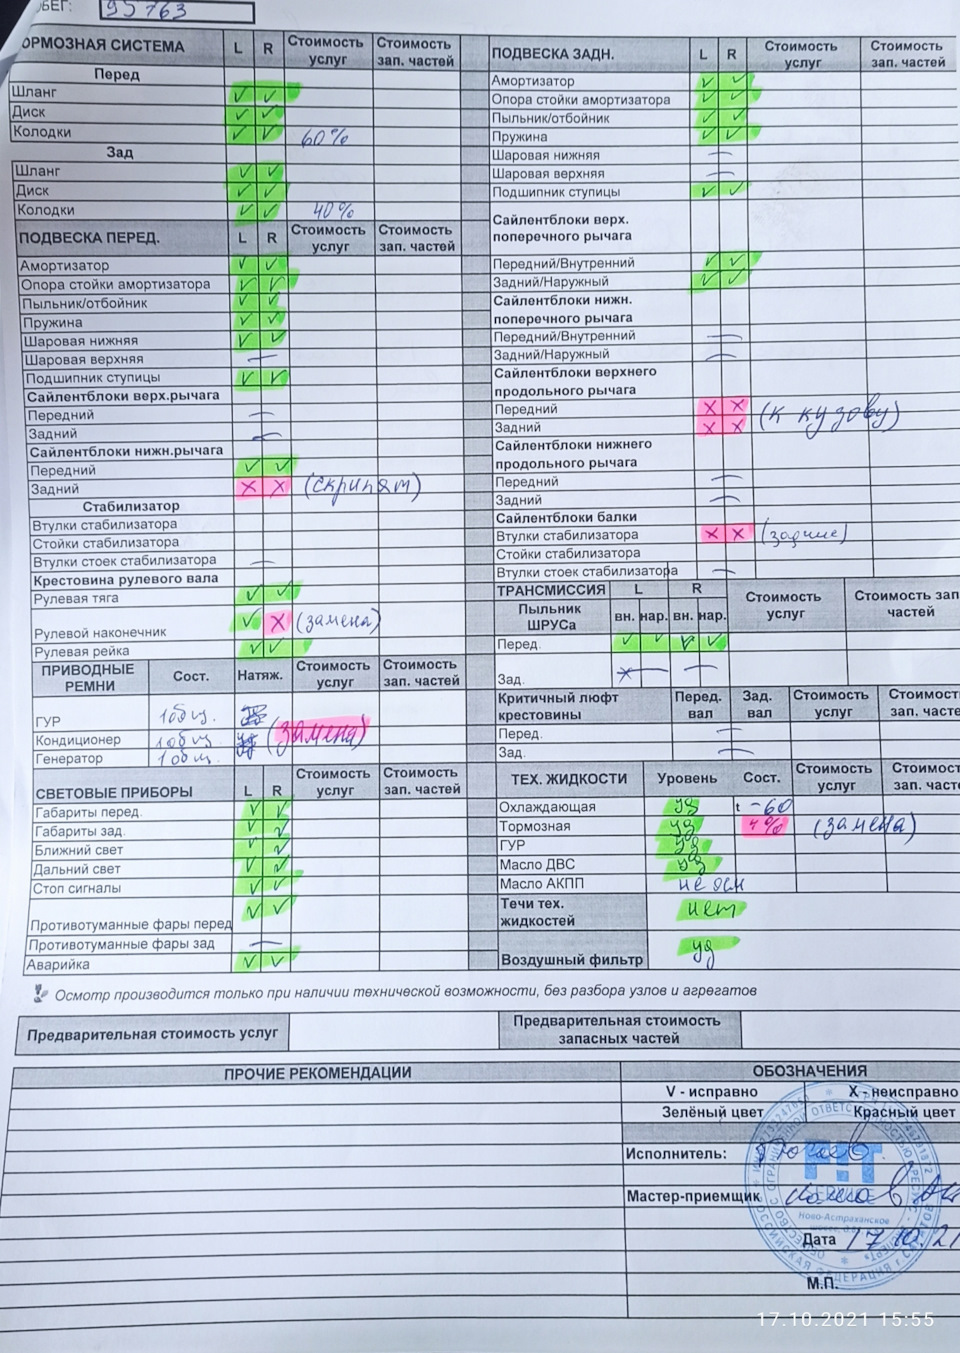 БЕГ: 95763
ОРМОЗНАЯ СИСТЕМА L R Стоимость услуг Стоимость зап. частей
Перед
Шланг V V
Диск V V
Колодки V V 60%
Зад
Шланг V V
Диск V V
Колодки V V 40%
ПОДВЕСКА ПЕРЕД. L R Стоимость услуг Стоимость зап. частей
Амортизатор V V
Опора стойки амортизатора V V
Пыльник/отбойник V V
Пружина V V
Шаровая нижняя V V
Шаровая верхняя —
Подшипник ступицы V V
Сайлентблоки верх.рычага
Передний —
Задний —
Сайлентблоки нижн.рычага
Передний V V
Задний X X (скрипят)
Стабилизатор
Втулки стабилизатора
Стойки стабилизатора
Втулки стоек стабилизатора —
Крестовина рулевого вала
Рулевая тяга V V
Рулевой наконечник V X (замена)
Рулевая рейка V V
ПРИВОДНЫЕ РЕМНИ Сост. Натяж. Стоимость услуг Стоимость зап. частей
ГУР
Кондиционер (замена)
Генератор
СВЕТОВЫЕ ПРИБОРЫ L R Стоимость услуг Стоимость зап. частей
Габариты перед. V V
Габариты зад. V V
Ближний свет V V
Дальний свет V V
Стоп сигналы V V
Противотуманные фары перед V V
Противотуманные фары зад —
Аварийка V V
ПОДВЕСКА ЗАДН. L R Стоимость услуг Стоимость зап. частей
Амортизатор V V
Опора стойки амортизатора V V
Пыльник/отбойник V V
Пружина V V
Шаровая нижняя —
Шаровая верхняя —
Подшипник ступицы V V
Сайлентблоки верх.
поперечного рычага
Передний/Внутренний V V
Задний/Наружный V V
Сайлентблоки нижн.
поперечного рычага
Передний/Внутренний —
Задний/Наружный —
Сайлентблоки верхнего
продольного рычага
Передний X X (к кузову)
Задний X X
Сайлентблоки нижнего
продольного рычага
Передний —
Задний —
Сайлентблоки балки
Втулки стабилизатора X X (задние)
Стойки стабилизатора
Втулки стоек стабилизатора —
ТРАНСМИССИЯ L R Стоимость услуг Стоимость зап частей
Пыльник ШРУСа вн. нар. вн. нар.
Перед. V V V V
Зад. — —
Критичный люфт крестовины Перед. вал Зад. вал Стоимость услуг Стоимость зап. часте
Перед. —
Зад. —
ТЕХ. ЖИДКОСТИ Уровень Сост. Стоимость услуг Стоимост зап. част
Охлаждающая уд t -60
Тормозная уд 4% (замена)
ГУР уд
Масло ДВС уд
Масло АКПП не осм
Течи тех. жидкостей нет
Воздушный фильтр уд
Осмотр производится только при наличии технической возможности, без разбора узлов и агрегатов
Предварительная стоимость услуг
Предварительная стоимость запасных частей
ПРОЧИЕ РЕКОМЕНДАЦИИ
ОБОЗНАЧЕНИЯ
V - исправно X - неисправно
Зелёный цвет Красный цвет
Исполнитель:
Мастер-приемщик
Дата 17.10.21
М.П.
Ново-Астраханское
17.10.2021 15:55